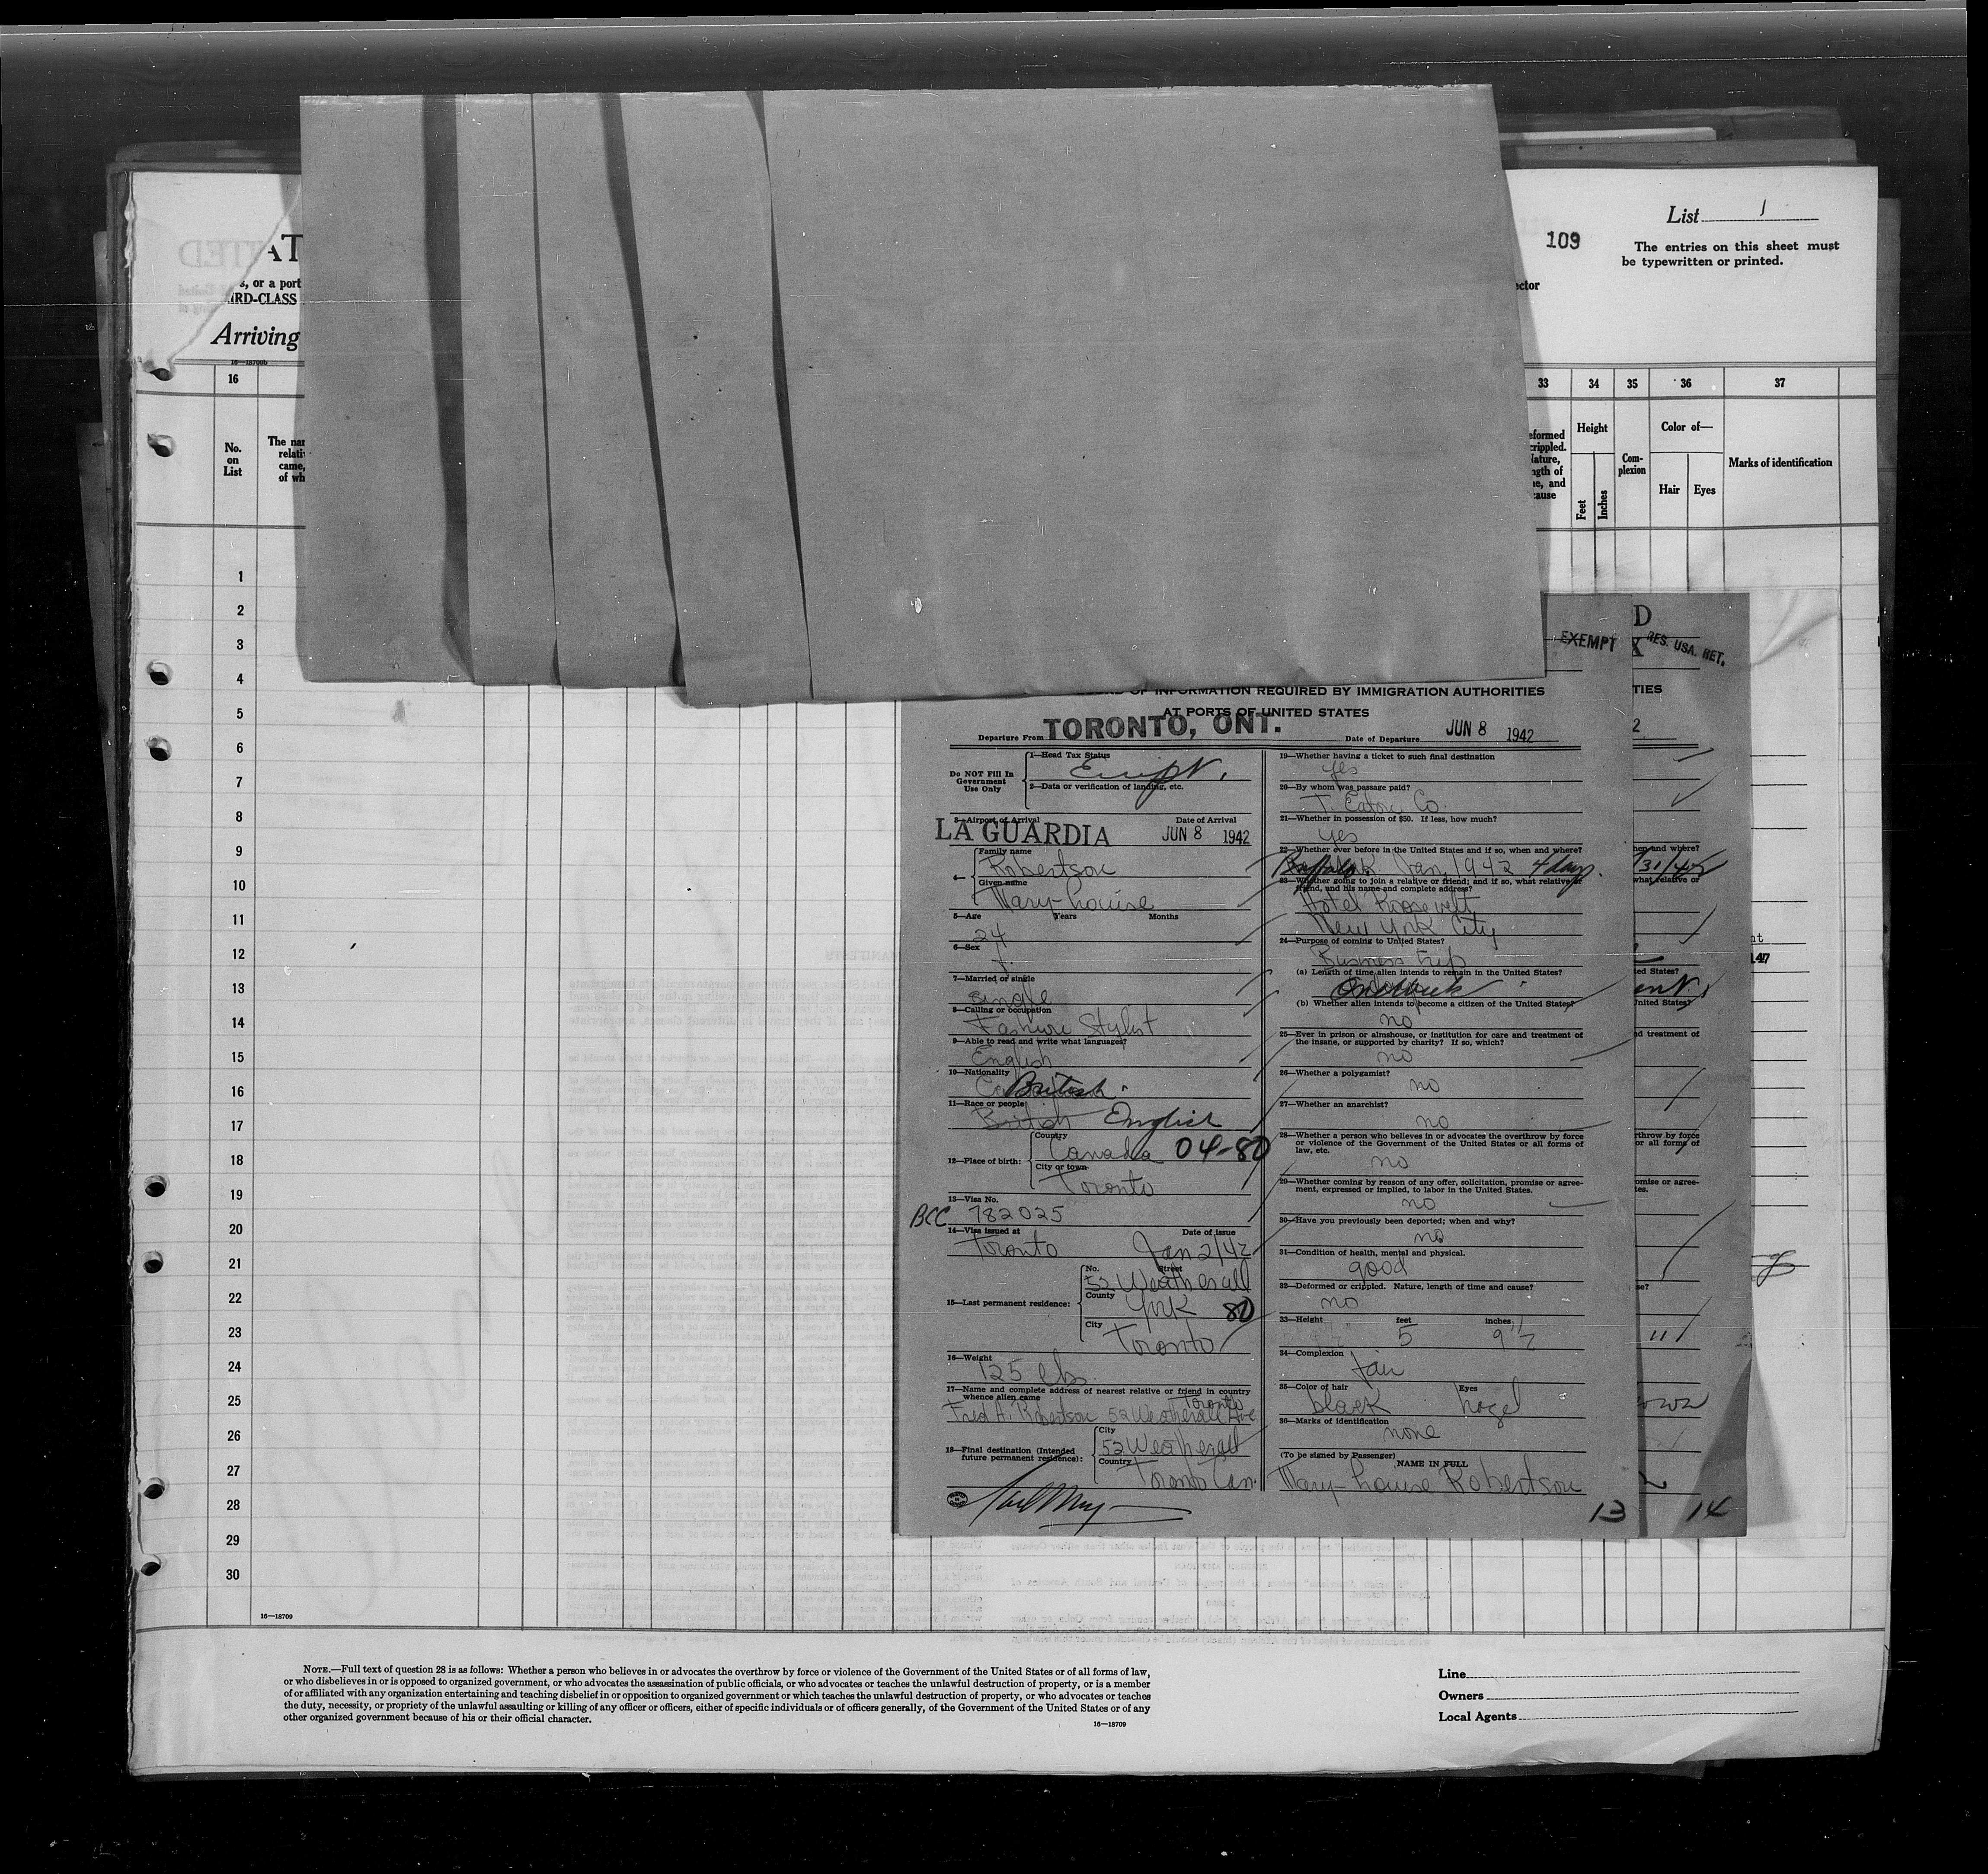 List 1
109
The entries on this sheet must
be typewritten or printed.
AT
s, or a port
IRD-CLASS
ector
Arriving
16—18700b
16
33
34
35
36
37
No.
on
List
The nar
relati
came,
of wh
eformed
crippled.
Nature,
ngth of
ne, and
cause
Height
Feet
Inches
Com-
plexion
Color of—
Hair
Eyes
Marks of identification
1
2
3
4
5
6
7
8
9
10
11
12
13
14
15
16
17
18
19
20
21
22
23
24
25
26
27
28
29
30
16—18709
EXEMPT
D
X
RES. USA. RET.
OF INFORMATION REQUIRED BY IMMIGRATION AUTHORITIES
AT PORTS OF UNITED STATES
Departure From TORONTO, ONT.
Date of Departure JUN 8 1942
Do NOT Fill In
Government
Use Only
1—Head Tax Status
Exempt.
2—Data or verification of landing, etc.
3—Airport of Arrival
Date of Arrival
LA GUARDIA JUN 8 1942
4—
Family name
Robertson
Given name
Mary-Louise
5—Age Years Months
24
6—Sex
f.
7—Married or single
single
8—Calling or occupation
Fashion Stylist
9—Able to read and write what languages?
English
10—Nationality
British
11—Race or people
British English
12—Place of birth:
Country
Canada 04-80
City or town
Toronto
13—Visa No.
BCC 782025
14—Visa issued at Date of issue
Toronto Jan 2/42
15—Last permanent residence:
No. Street
52 Weatherall
County
York 80
City
Toronto
16—Weight
125 lbs.
17—Name and complete address of nearest relative or friend in country
whence alien came
Toronto
Fred A. Robertson 52 Weatherall Ave
18—Final destination (Intended
future permanent residence):
City
52 Weatherall
Country
Toronto Can.
19—Whether having a ticket to such final destination
yes
20—By whom was passage paid?
T. Eaton Co.
21—Whether in possession of $50. If less, how much?
yes
22—Whether ever before in the United States and if so, when and where?
Buffalo Jan. 1942 4 days.
23—Whether going to join a relative or friend; and if so, what relative or
friend, and his name and complete address?
Hotel Roosevelt
New York City
24—Purpose of coming to United States?
Business trip
(a) Length of time alien intends to remain in the United States?
One Week
(b) Whether alien intends to become a citizen of the United States?
no
25—Ever in prison or almshouse, or institution for care and treatment of
the insane, or supported by charity? If so, which?
no
26—Whether a polygamist?
no
27—Whether an anarchist?
no
28—Whether a person who believes in or advocates the overthrow by force
or violence of the Government of the United States or all forms of
law, etc.
no
29—Whether coming by reason of any offer, solicitation, promise or agree-
ment, expressed or implied, to labor in the United States.
no
30—Have you previously been deported; when and why?
no
31—Condition of health, mental and physical.
good
32—Deformed or crippled. Nature, length of time and cause?
no
33—Height feet inches
5 9 1/2
34—Complexion
fair
35—Color of hair Eyes
black hazel
36—Marks of identification
none
(To be signed by Passenger)
NAME IN FULL
Mary-Louise Robertson
13
TIES
2
hen and where?
31/42
what relative or
ted States?
United States?
nd treatment of
throw by force
or all forms of
omise or agree-
tes.
se?
11
14
nt
147
NOTE.—Full text of question 28 is as follows: Whether a person who believes in or advocates the overthrow by force or violence of the Government of the United States or of all forms of law,
or who disbelieves in or is opposed to organized government, or who advocates the assassination of public officials, or who advocates or teaches the unlawful destruction of property, or is a member
of or affiliated with any organization entertaining and teaching disbelief in or opposition to organized government or which teaches the unlawful destruction of property, or who advocates or teaches
the duty, necessity, or propriety of the unlawful assaulting or killing of any officer or officers, either of specific individuals or of officers generally, of the Government of the United States or of any
other organized government because of his or their official character.
16—18709
Line
Owners
Local Agents